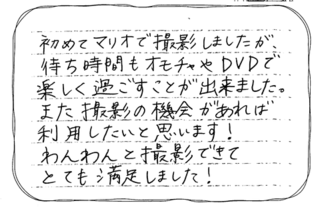 初めてマリオで撮影しましたが、
待ち時間もオモチャやDVDで
楽しく過ごすことが出来ました。
また撮影の機会があれば
利用したいと思います!
わんわんと撮影できて
とても満足しました!